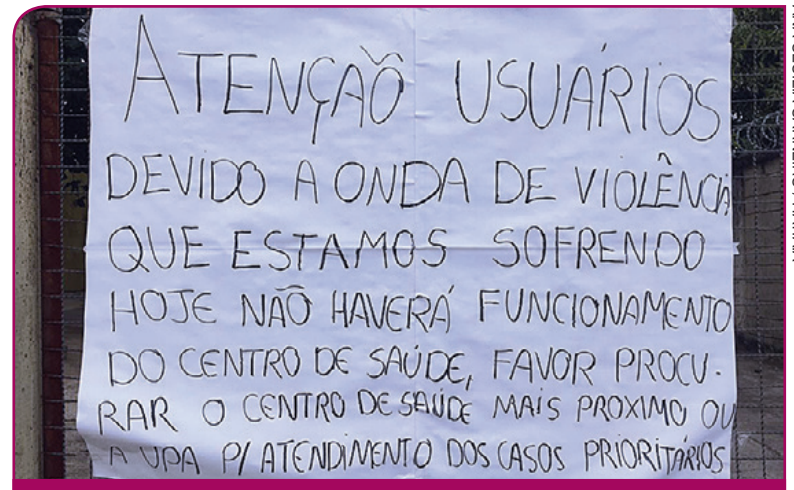 ATENÇAÕ USUÁRIOS
DEVIDO A ONDA DE VIOLÊNCIA
QUE ESTAMOS SOFRENDO
HOJE NÃO HAVERÁ FUNCIONAMENTO
DO CENTRO DE SAÚDE, FAVOR PROCU-
RAR O CENTRO DE SAÚDE MAIS PROXIMO OU
A UPA P/ ATENDIMENTO DOS CASOS PRIORITÁRIOS